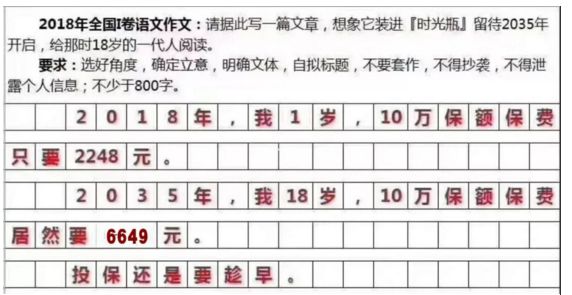 2018年全国I卷语文作文：请据此写一篇文章，想象它装进『时光瓶』留待2035年
开启，给那时18岁的一代人阅读。
要求：选好角度，确定立意，明确文体，自拟标题，不要套作，不得抄袭，不得泄
露个人信息；不少于800字。
2018年，我1岁，10万保额保费
只要2248元。
2035年，我18岁，10万保额保费
居然要6649元。
投保还是要趁早。